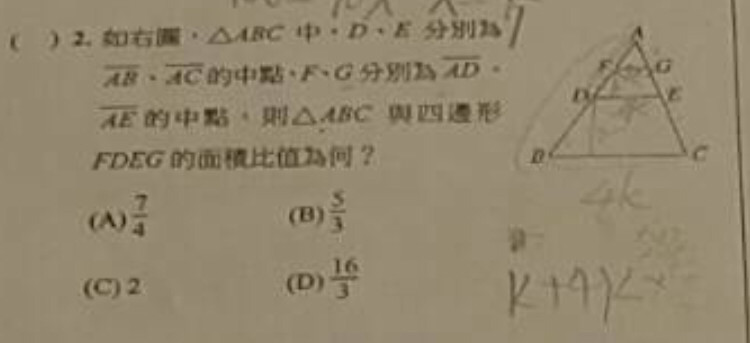 ( ) 2. 如右圖,△ABC 中,D、E 分別為
AB、AC 的中點,F、G 分別為 AD、
AE 的中點,則△ABC 與四邊形
FDEG 的面積比值為何?
(A) 7/4
(B) 5/3
(C) 2
(D) 16/3
A
F
G
D
E
B
C
4k